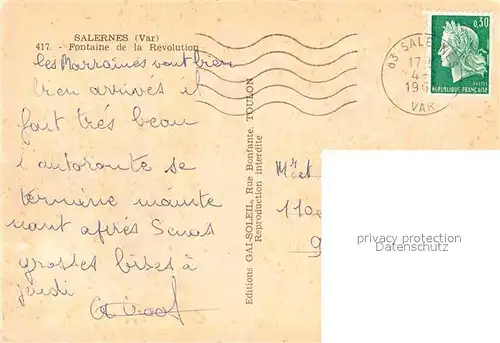 SALERNES (Var)
417. - Fontaine de la Révolution
les Marraines sont bien
bien arrivés et
fait trés beau
l'autoroute se
termine mainte
nant aprés Senas
grosses bises à
jeudi
Editions GAI-SOLEIL, Rue Bonfante, TOULON
Reproduction interdite
0,30
POSTES
REPUBLIQUE FRANÇAISE
83 SALE
17
4-
196
VAR
Mr et
110
9
privacy protection
Datenschutz